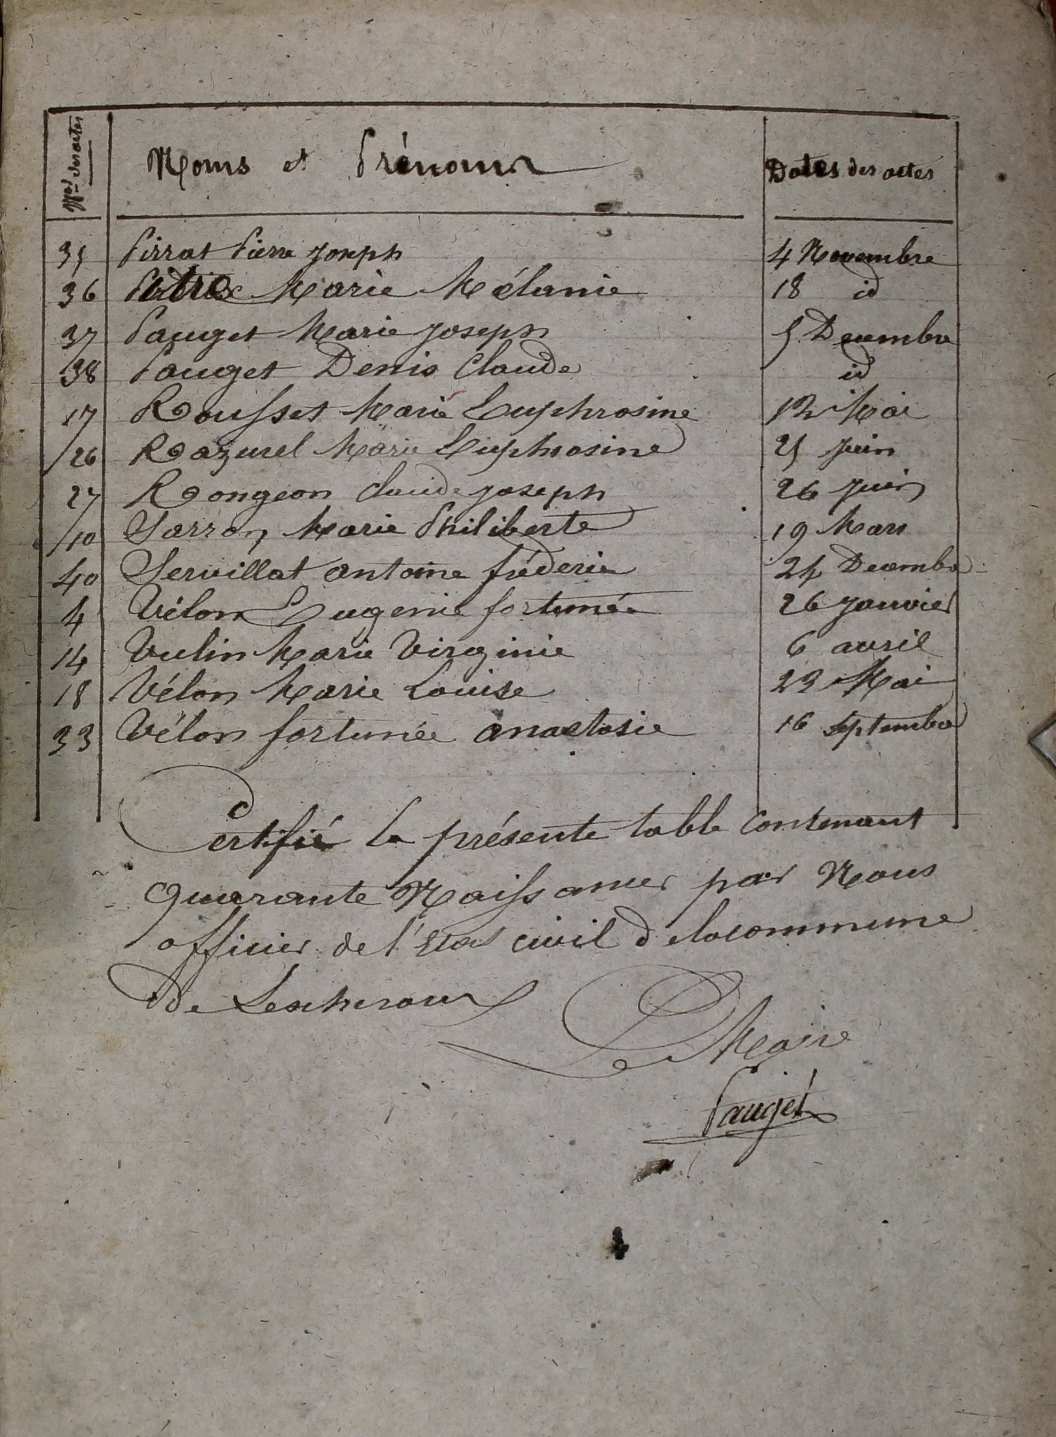 Nos des actes Noms et Prénoms Dates des actes
35 Pirrat Pierre Joseph 4 Novembre
36 Marie Mélanie 18 id
37 Pauget Marie Joseph 5 Decembre
38 Pauget Denis Claude id
17 Rousset Marie Euphrosine 12 Mai
26 Razurel Marie Euphrosine 25 Juin
27 Rongeon Claude Joseph 26 Juin
10 Sarron Marie Philiberte 19 Mars
40 Servillat antoine fréderic 24 Decembre
4 Vélon Eugenie fortunée 26 Janvier
14 Vulin Marie Virginie 6 avril
18 Vélon Marie Louise 23 Mai
33 Vélon fortunée anastasie 16 Septembre
Certifié la présente table contenant
quarante Naissances par Nous
officier de l'Etat civil de la commune
de Lescheroux
Le Maire
Pauget